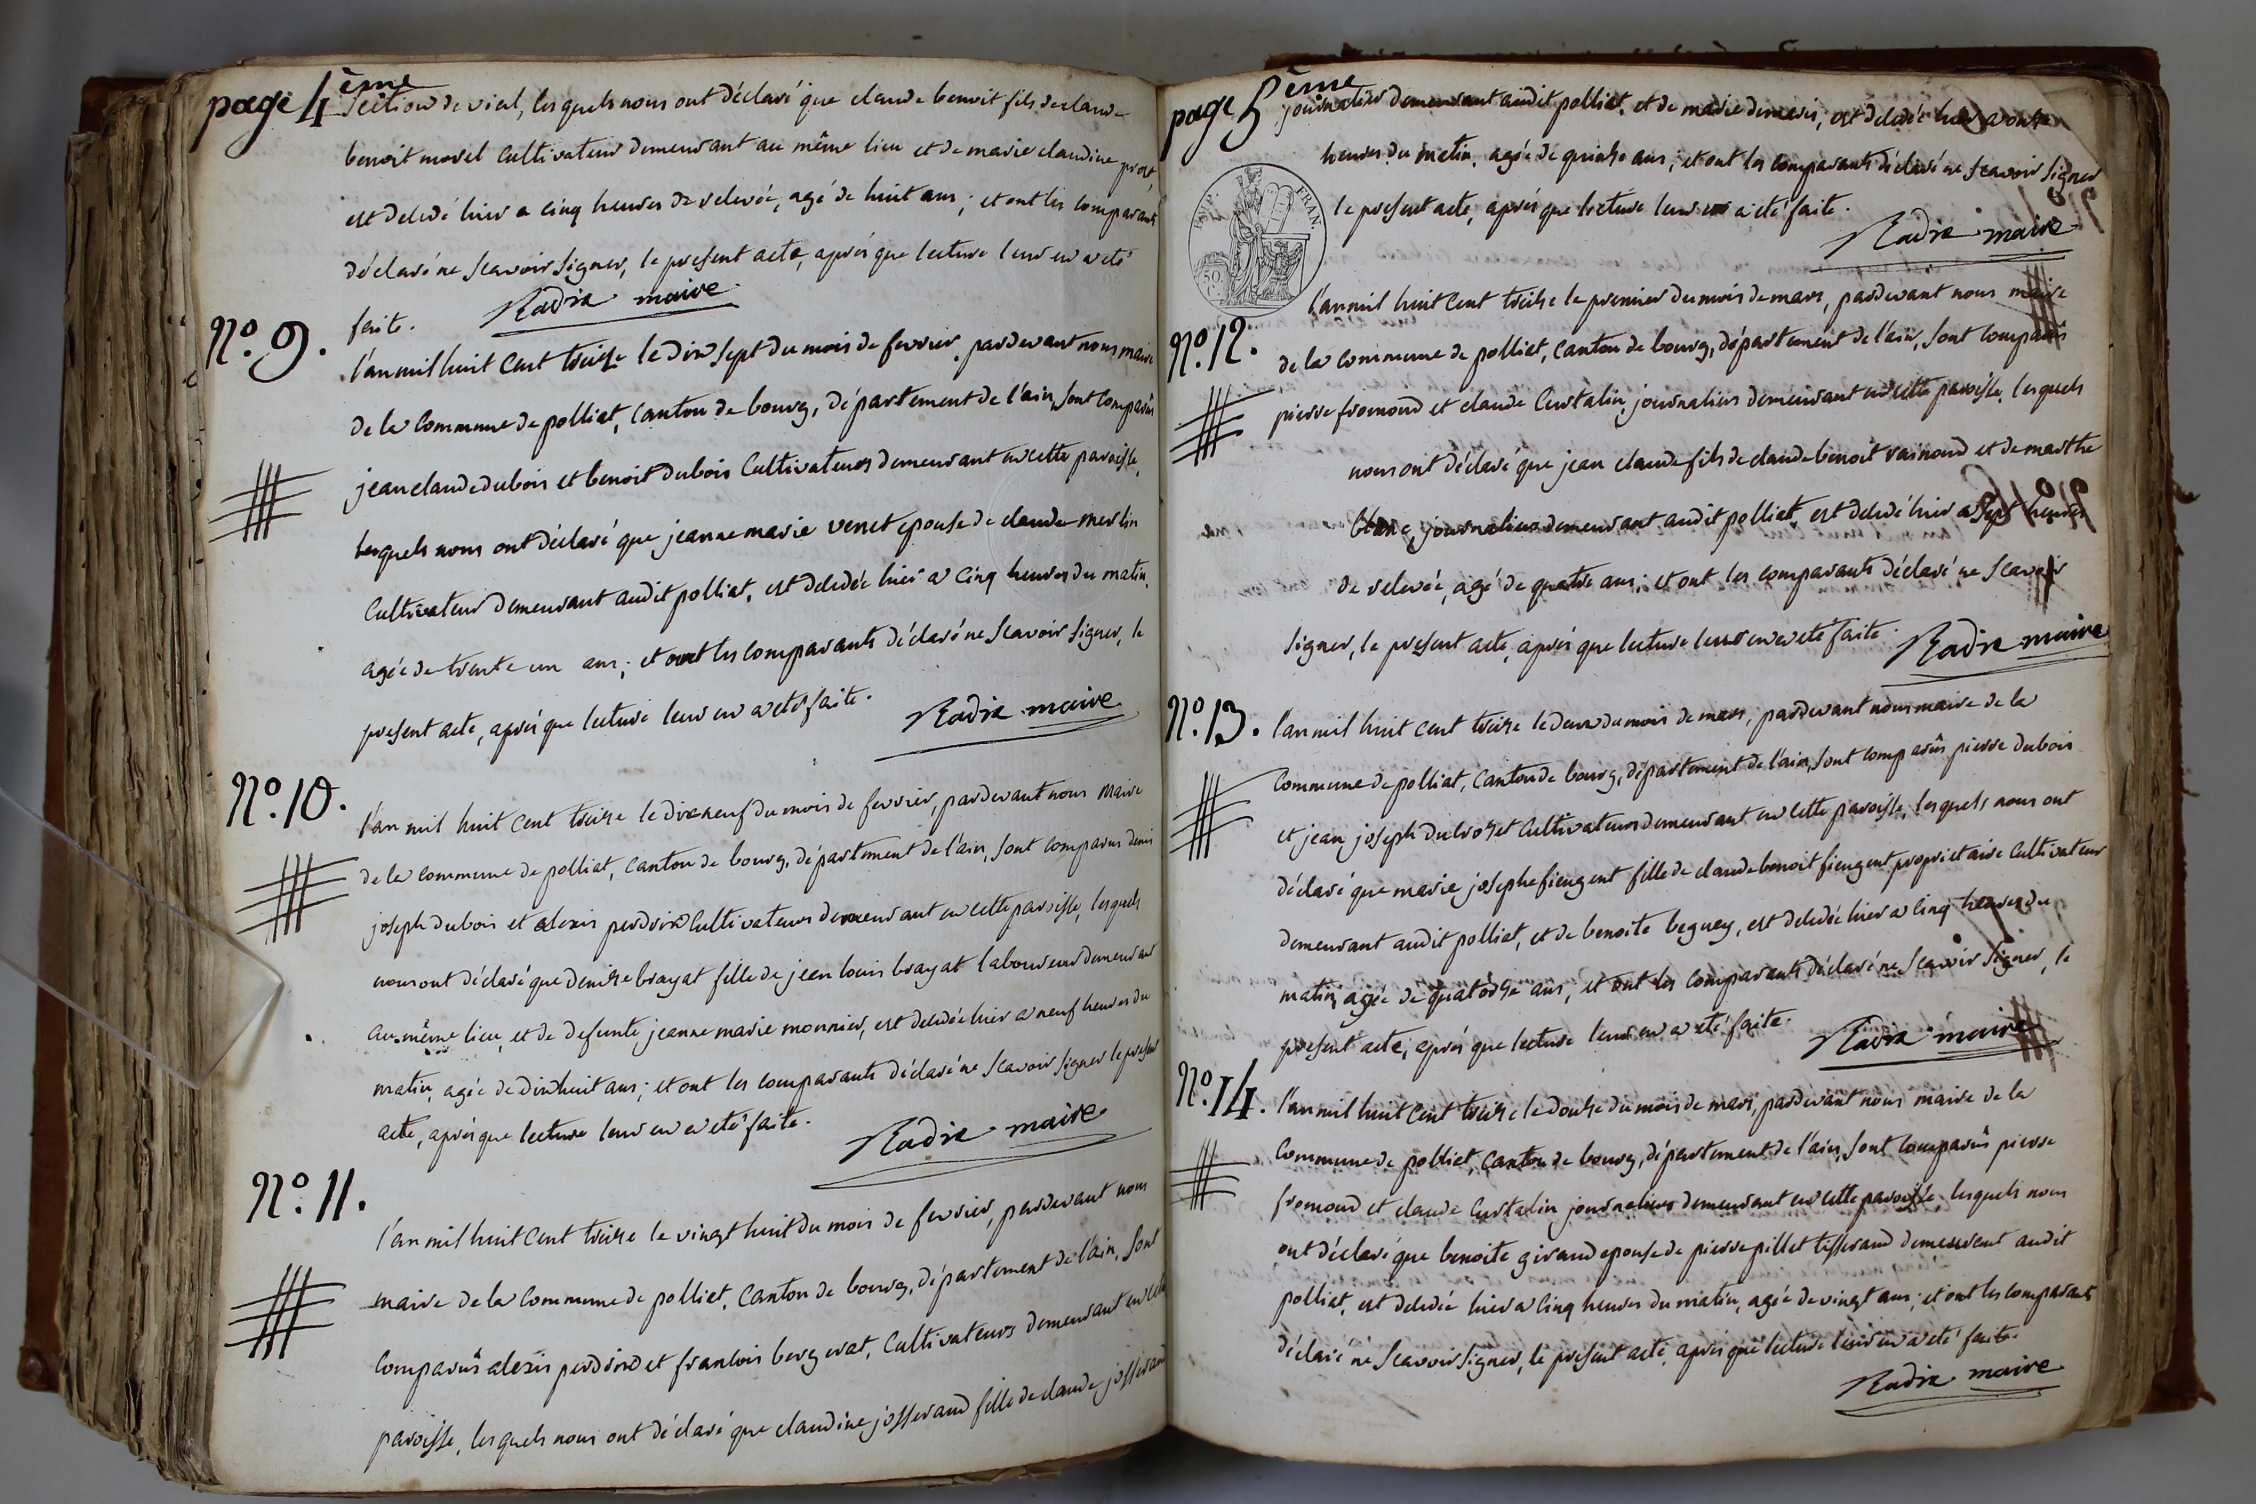 page 4ème
section de vial, lesquels nous ont déclaré que claude benoit fils de claude
benoit morel cultivateur demeurant au même lieu et de marie claudine prost,
est décédé hier a cinq heures de relevée, agé de huit ans; et ont les comparants
déclaré ne scavoir signer, le present acte, aprés que lecture leur en a eté
faite. Radix maire
N.º 9.
l'an mil huit cent treize le dix sept du mois de fevrier, pardevant nous maire
de la commune de polliat, canton de bourg, département de l'ain, sont comparûs
jean claude dubois et benoit dubois cultivateurs demeurant en cette paroisse,
lesquels nous ont déclaré que jeanne marie venet epouse de claude merlin
cultivateur demeurant audit polliat, est décédée hier a cinq heures du matin,
agée de trente un ans; et ont les comparants déclaré ne scavoir signer, le
present acte, aprés que lecture leur en a eté faite. Radix maire
N.º 10.
l'an mil huit cent treize le dix neuf du mois de fevrier, pardevant nous maire
de la commune de polliat, canton de bourg, département de l'ain, sont comparus denis
joseph dubois et alexis perdrix cultivateurs demeurant en cette paroisse, lesquels
nous ont déclaré que denise brayat fille de jean louis brayat laboureur demeurant
au même lieu, et de defunte jeanne marie monnier, est décédée hier a neuf heures du
matin, agée de dix huit ans; et ont les comparants déclaré ne scavoir signer le present
acte, aprés que lecture leur en a eté faite. Radix maire
N.º 11.
l'an mil huit cent treize le vingt huit du mois de fevrier, pardevant nous
maire de la commune de polliat, canton de bourg, département de l'ain, sont
comparûs alexis perdrix et francois bergerat, cultivateurs demeurant en cette
paroisse, lesquels nous ont déclaré que claudine josserand fille de claude josserand
page 5ème
journalier demeurant audit polliat, et de marie demaris, est décédée hier a onze
heures du matin, agée de quinze ans; et ont les comparants déclaré ne scavoir signer
le present acte, aprés que lecture leur en a eté faite. Radix maire
REP. FRAN.
50
N.º 12.
l'an mil huit cent treize le premier du mois de mars, pardevant nous maire
de la commune de polliat, canton de bourg, département de l'ain, sont comparûs
pierre fromond et claude curtalin, journaliers demeurant en cette paroisse, lesquels
nous ont déclaré que jean claude fils de claude benoit rainoud et de marthe
blanc, journalier demeurant audit polliat, est décédé hier a sept heures
de relevée, agé de quatre ans; et ont les comparants déclaré ne scavoir
signer, le present acte, aprés que lecture leur en a eté faite. Radix maire
N.º 13.
l'an mil huit cent treize le deux du mois de mars, pardevant nous maire de la
commune de polliat, canton de bourg, département de l'ain, sont comparûs pierre dubois
et jean joseph dubrozet cultivateurs demeurant en cette paroisse, lesquels nous ont
déclaré que marie josephe fieugent fille de claude benoit fieugent proprietaire cultivateur
demeurant audit polliat, et de benoite beguey, est décédée hier a cinq heures du
matin, agée de quatorze ans, et ont les comparants déclaré ne scavoir signer, le
present acte, aprés que lecture leur en a eté faite. Radix maire
N.º 14.
l'an mil huit cent treize le douze du mois de mars, pardevant nous maire de la
commune de polliat, canton de bourg, département de l'ain, sont comparûs pierre
fromond et claude curtalin journaliers demeurant en cette paroisse, lesquels nous
ont déclaré que benoite giraud epouse de pierre pillet tisserand demeurant audit
polliat, est décédée hier a cinq heures du matin, agée de vingt ans; et ont les comparants
déclaré ne scavoir signer, le present acte, aprés que lecture leur en a eté faite.
Radix maire